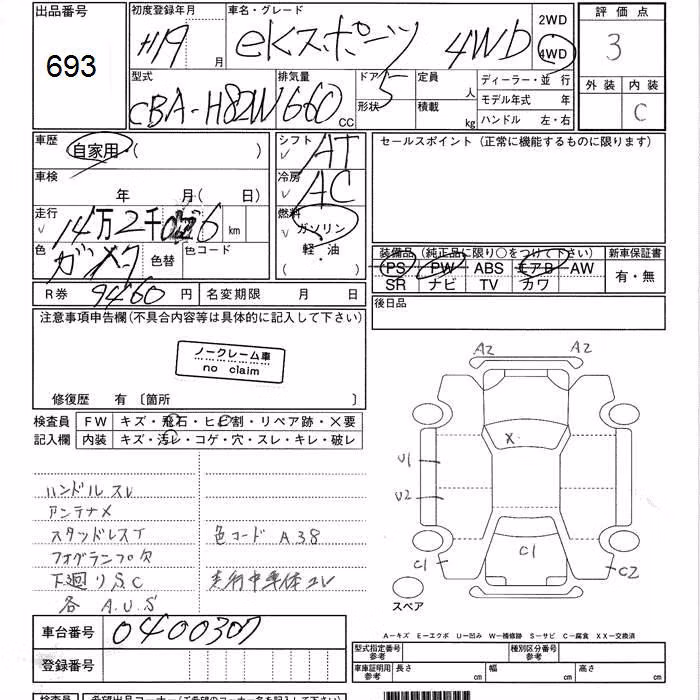 出品番号
693
初度登録年月
H19 月
車名・グレード
eKスポーツ 4WD
2WD
4WD
評価点
3
外装 内装
C
型式
CBA-H82W
排気量
660 CC
ドア 5
形状
定員 人
積載 kg
ディーラー・並行
モデル年式 年
ハンドル 左・右
車歴
自家用 ( )
車検
年 月 ( 日)
走行
14万2千 6 km
色
ガンメタ
色替
色コード
シフト
AT
冷房
AC
燃料
ガソリン
軽・油
セールスポイント (正常に機能するものに限ります)
装備品 (純正品に限り○をつけて下さい)
PS PW ABS エアB AW
SR ナビ TV カワ
新車保証書
有・無
後日品
R券 9460 円
名変期限 月 日
注意事項申告欄(不具合内容等は具体的に記入して下さい)
ノークレーム車
no claim
修復歴 有 〔箇所 〕
検査員
記入欄
FW キズ・飛石・ヒビ割・リペア跡・×要
内装 キズ・汚レ・コゲ・穴・スレ・キレ・破レ
ハンドルスレ
アンテナメ
スタッドレスT
フォグランプ欠
下廻りS.C
各 A.U.S
色コード A38
A2 A2
X
U1
U2
C1
C1
C2
スペア
A-キズ E-エクボ U-凹み W-補修跡 S-サビ C-腐食 XX-交換済
車台番号
0400307
登録番号
型式指定番号
参考
種別区分番号
参考
車庫証明用
参考
長さ cm
幅 cm
高さ cm
検査員
希望出品コーナー(ご希望のコーナー名を記入下さい)